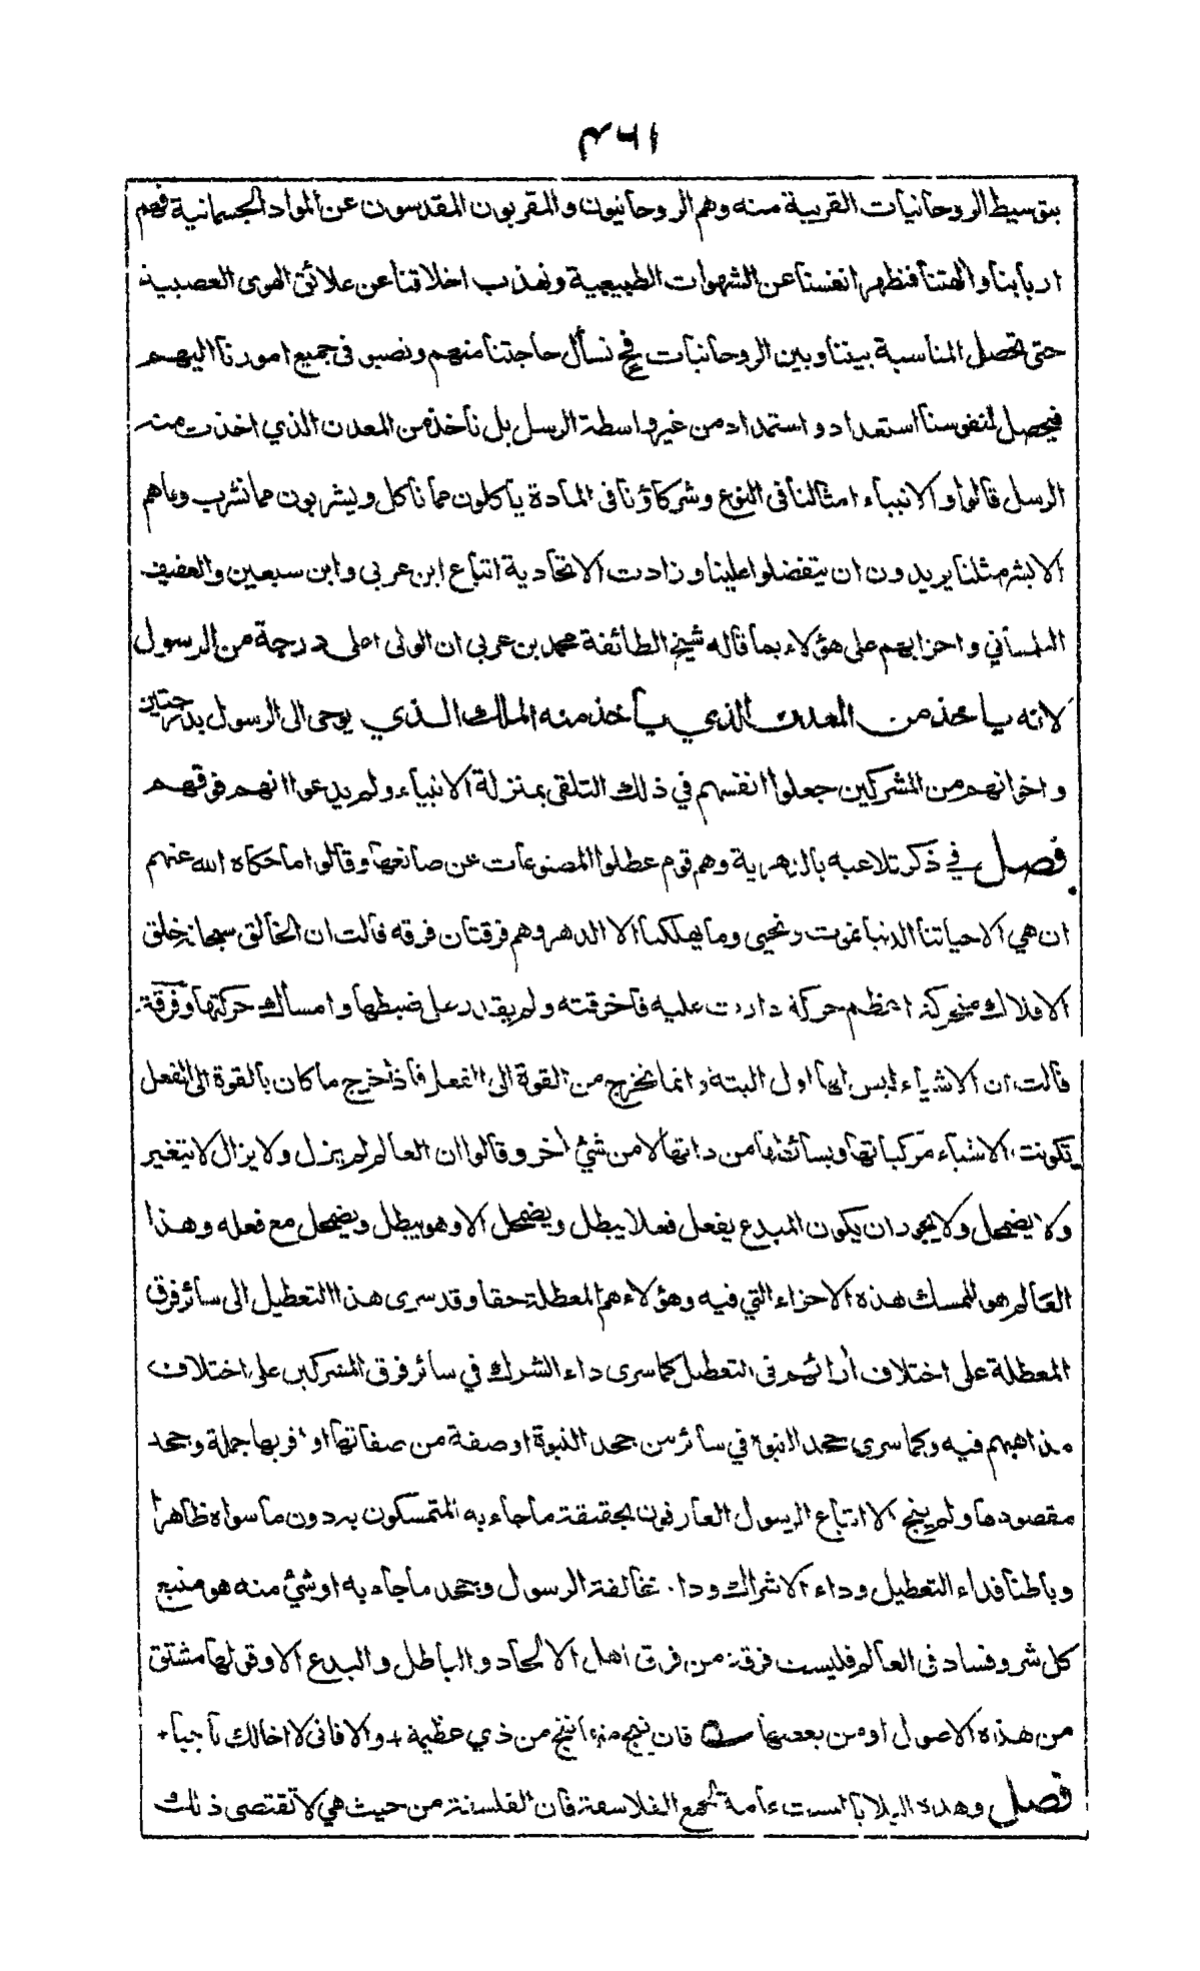 ٤٦١
بتوسيط الروحانيات القريبة منه وهم الروحانيون والمقربون المقدسون عن المواد الجسمانية فهم
اربابنا والهتنا فنطهر انفسنا عن الشهوات الطبيعية ونهذب اخلاقنا عن علائق القوى الغضبية
حتى تحصل المناسبة بيننا وبين الروحانيات فح نسأل حاجتنا منهم ونصبو في جميع امورنا اليهم
فيحصل لنفوسنا استعداد واستمداد من غير واسطة الرسل بل نأخذ من المعدن الذي اخذت منه
الرسل قالوا والانبياء امثالنا في النوع وشركاؤنا في المادة يأكلون مما نأكل ويشربون مما نشرب وما هم
الا بشر مثلنا يريدون ان يتفضلوا علينا وزادت الاتحادية اتباع ابن عربي وابن سبعين والعفيف
التلمساني واحزابهم على هؤلاء بما قاله شيخ الطائفة محمد بن عربي ان الولي اعلى درجة من الرسول
لانه يأخذ من المعدن الذي يأخذ منه الملك الذي يوحى الى الرسول بدرجتين
واخوانهم من المشركين جعلوا انفسهم في ذلك التلقي بمنزلة الانبياء ولم يدعوا انهم فوقهم
فصل في ذكر تلاعبه بالدهرية وهم قوم عطلوا المصنوعات عن صانعها وقالوا ما حكاه الله عنهم
ان هي الا حياتنا الدنيا نموت ونحيى وما يهلكنا الا الدهر وهم فرقتان فرقه قالت ان الخالق سبحانه خلق
الافلاك متحركة اعظم حركة دارت عليه فاحرقته ولم يقدر على ضبطها وامساك حركتها وفرقة
قالت ان الاشياء ليس لها اول البتة وانما تخرج من القوة الى الفعل فاذا خرج ما كان بالقوة الى الفعل
تكونت الاشياء مركباتها وبسائطها من ذاتها لا من شئ اخر وقالوا ان العالم لم يزل ولا يزال لا يتغير
ولا يضمحل ولا يجوز ان يكون المبدع يفعل فعلا يبطل ويضمحل الا وهو يبطل ويضمحل مع فعله وهذا
العالم هو الممسك هذه الاجزاء التي فيه وهؤلاء هم المعطلة حقا وقد سرى هذا التعطيل الى سائر فرق
المعطلة على اختلاف أرائهم في التعطيل كما سرى داء الشرك في سائر فرق المشركين على اختلاف
مذاهبهم فيه وكما سرى جحد النبوة في سائر من جحد النبوة او صفة من صفاتها او اقر بها جملة وجحد
مقصودها ولم ينج الا اتباع الرسول العارفون بحقيقة ما جاء به المتمسكون به دون ما سواه ظاهرا
وباطنا فداء التعطيل وداء الاشراك وداء مخالفة الرسول وجحد ما جاء به او شئ منه هو منبع
كل شر وفساد في العالم فليست فرقة من فرق اهل الالحاد والباطل والبدع الا وقولها مشتق
من هذه الاصول او من بعضها فان تنج منها تنج من ذي عظيمة + والا فاني لا اخالك ناجيا +
فصل وهذه البلايا ليست عامة لجميع الفلاسفة فان الفلسفة من حيث هي لا تقتضي ذلك